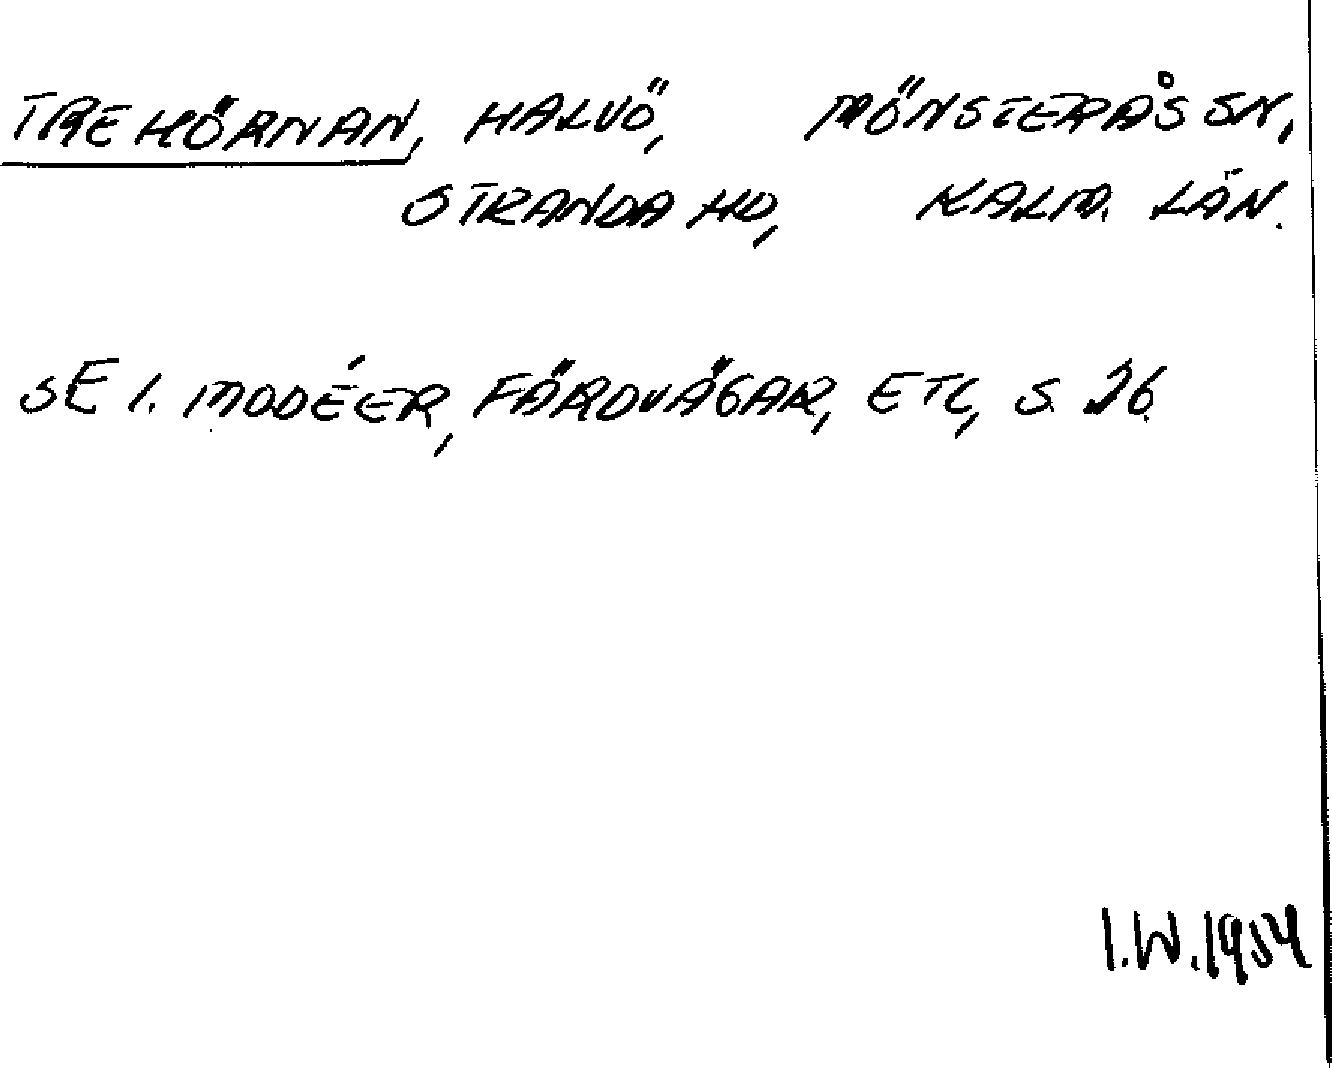 TREHÖRNAN, HALVÖ, MÖNSTERÅS SN,
STRANDA HD, KALM. LÄN.
SE I. MODÉER, FÄRDVÄGAR, ETC, S. 26.
I.W. 1954